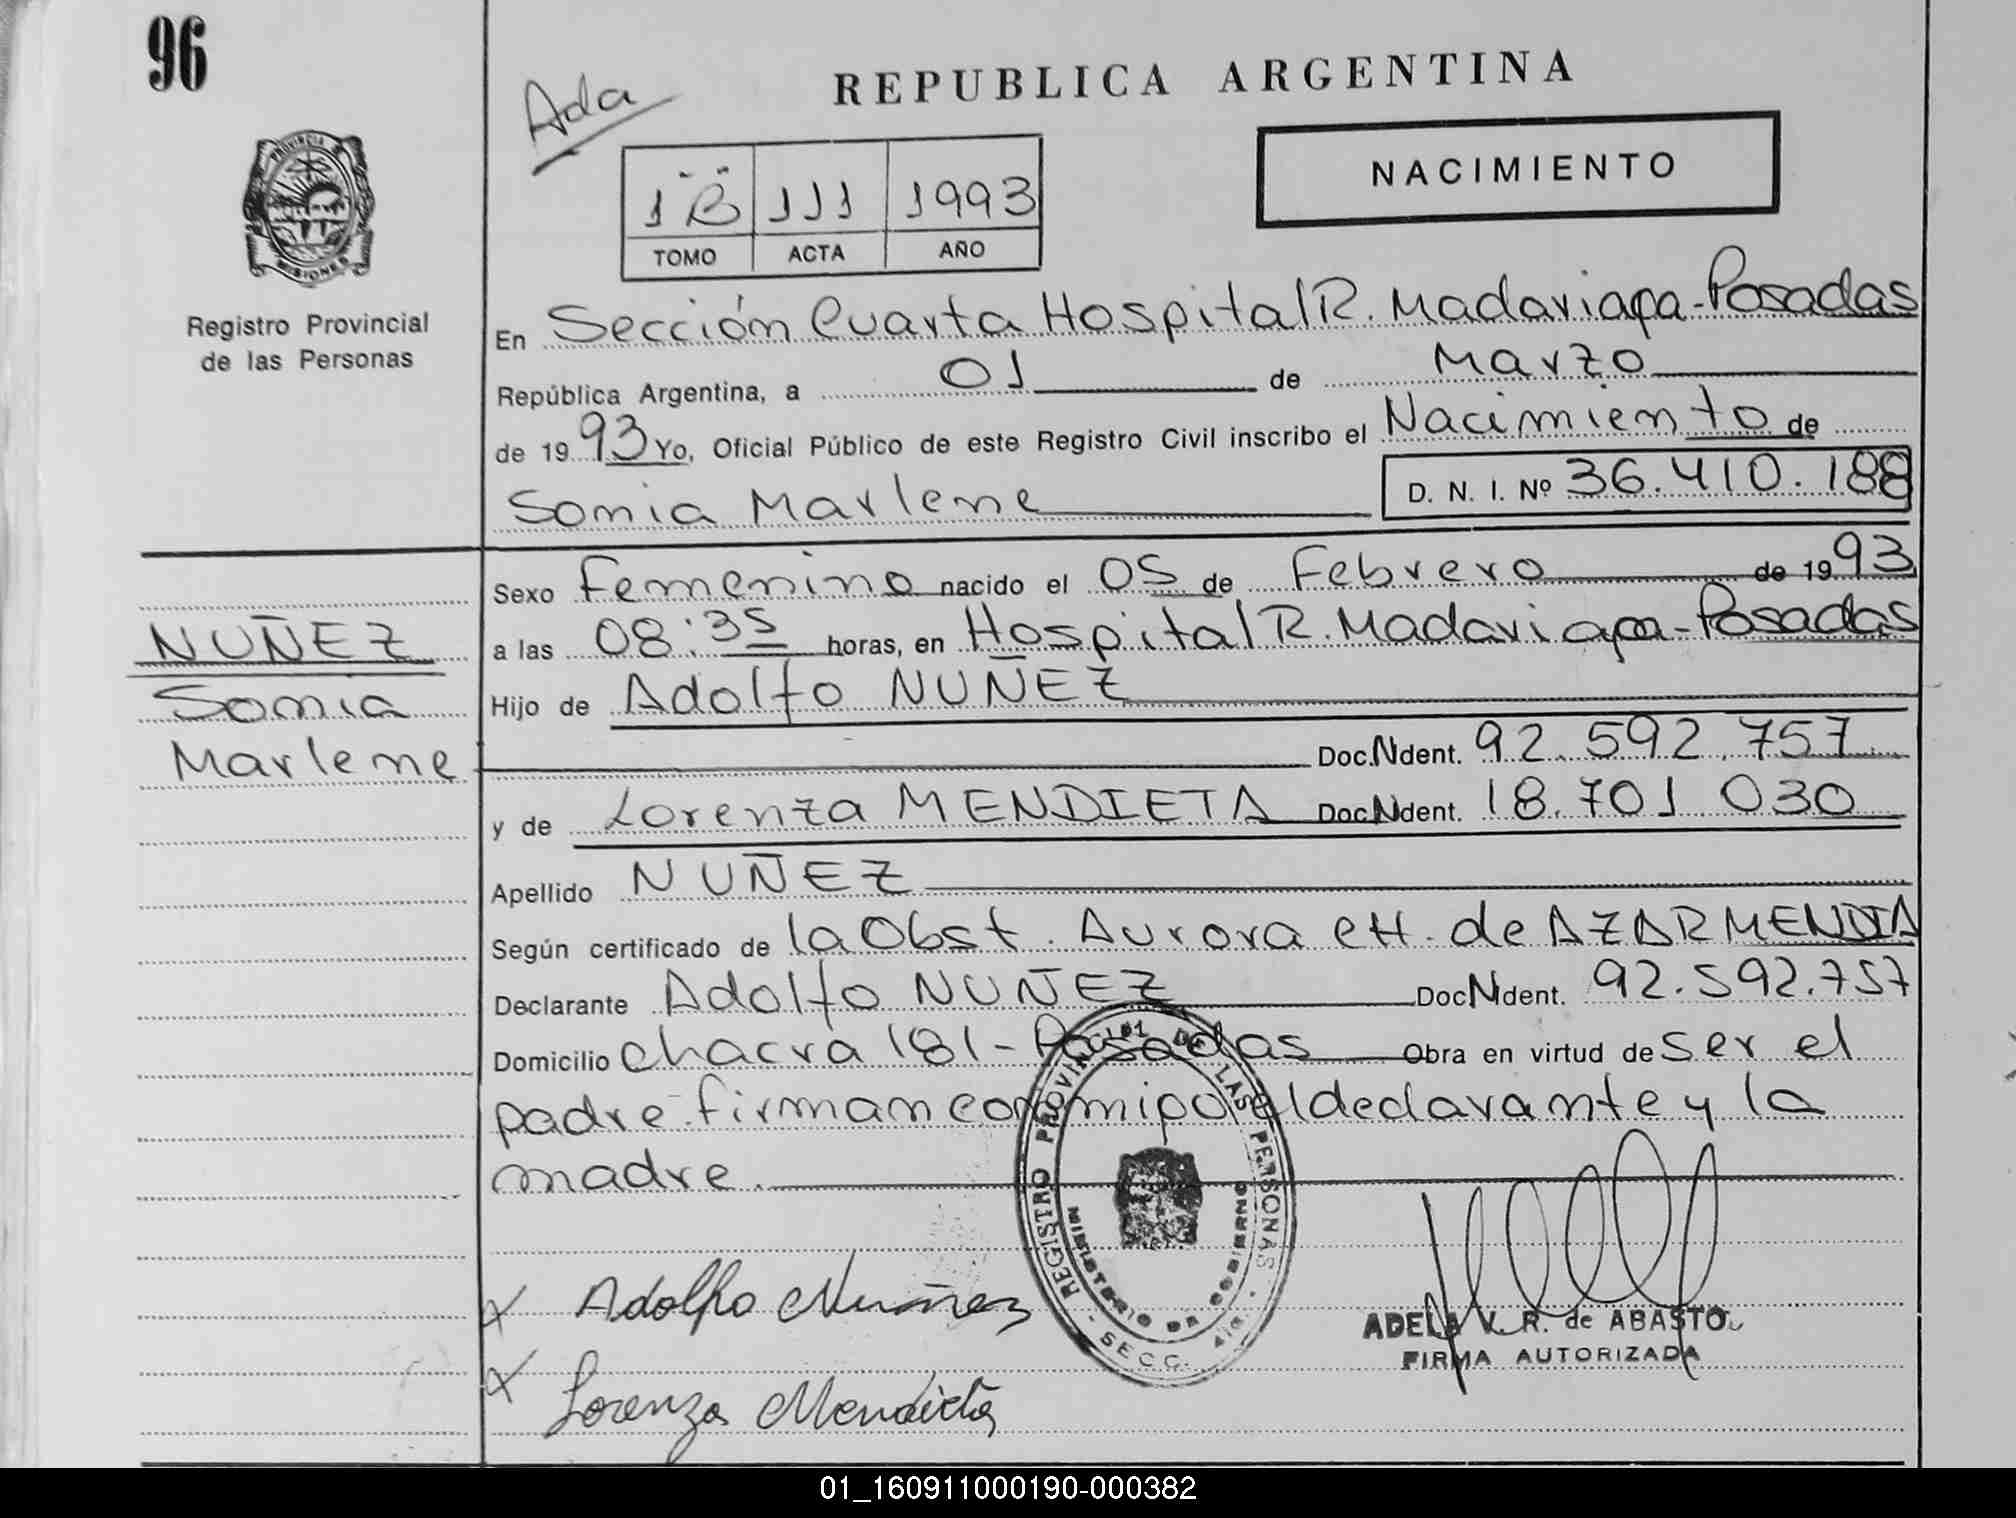 96
Ada
REPUBLICA ARGENTINA
PROVINCIA DE
MISIONES
Registro Provincial
de las Personas
NACIMIENTO
1 "B" 111 1993
TOMO ACTA AÑO
En Sección Cuarta Hospital R. Madariaga-Posadas
República Argentina, a 01 de Marzo
de 1993 Yo, Oficial Público de este Registro Civil inscribo el Nacimiento de
Sonia Marlene D. N. I. Nº 36.410.188
Sexo Femenino nacido el 05 de Febrero de 1993
a las 08:35 horas, en Hospital R. Madariaga-Posadas
Hijo de Adolfo NUÑEZ
Doc. Ident. 92.592.757
y de Lorenza MENDIETA Doc. Ident. 18.701.030
Apellido NUÑEZ
Según certificado de la Obst. Aurora H. de AZARMENDIA
Declarante Adolfo NUÑEZ Doc. Ident. 92.592.757
Domicilio chacra 181-Posadas Obra en virtud de ser el
padre-firman conmigo el declarante y la
madre.
NUÑEZ
Sonia
Marlene
REGISTRO PROVINCIAL DE LAS PERSONAS
MINISTERIO DE GOBIERNO
SECC. 4ta.
x Adolfo Nuñez
x Lorenza Mendieta
ADELA V. R. de ABASTO
FIRMA AUTORIZADA
01_160911000190-000382